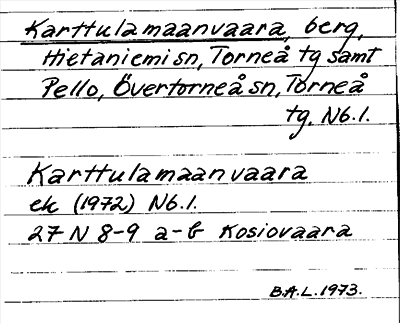 Karttulamaanvaara, berg,
Hietaniemi sn, Torneå tg samt
Pello, Övertorneå sn, Torneå
tg. Nb.l.
Karttulamaanvaara
ek (1972) Nb.l.
27 N 8-9 a-b Kosiovaara
B.A.L. 1973.